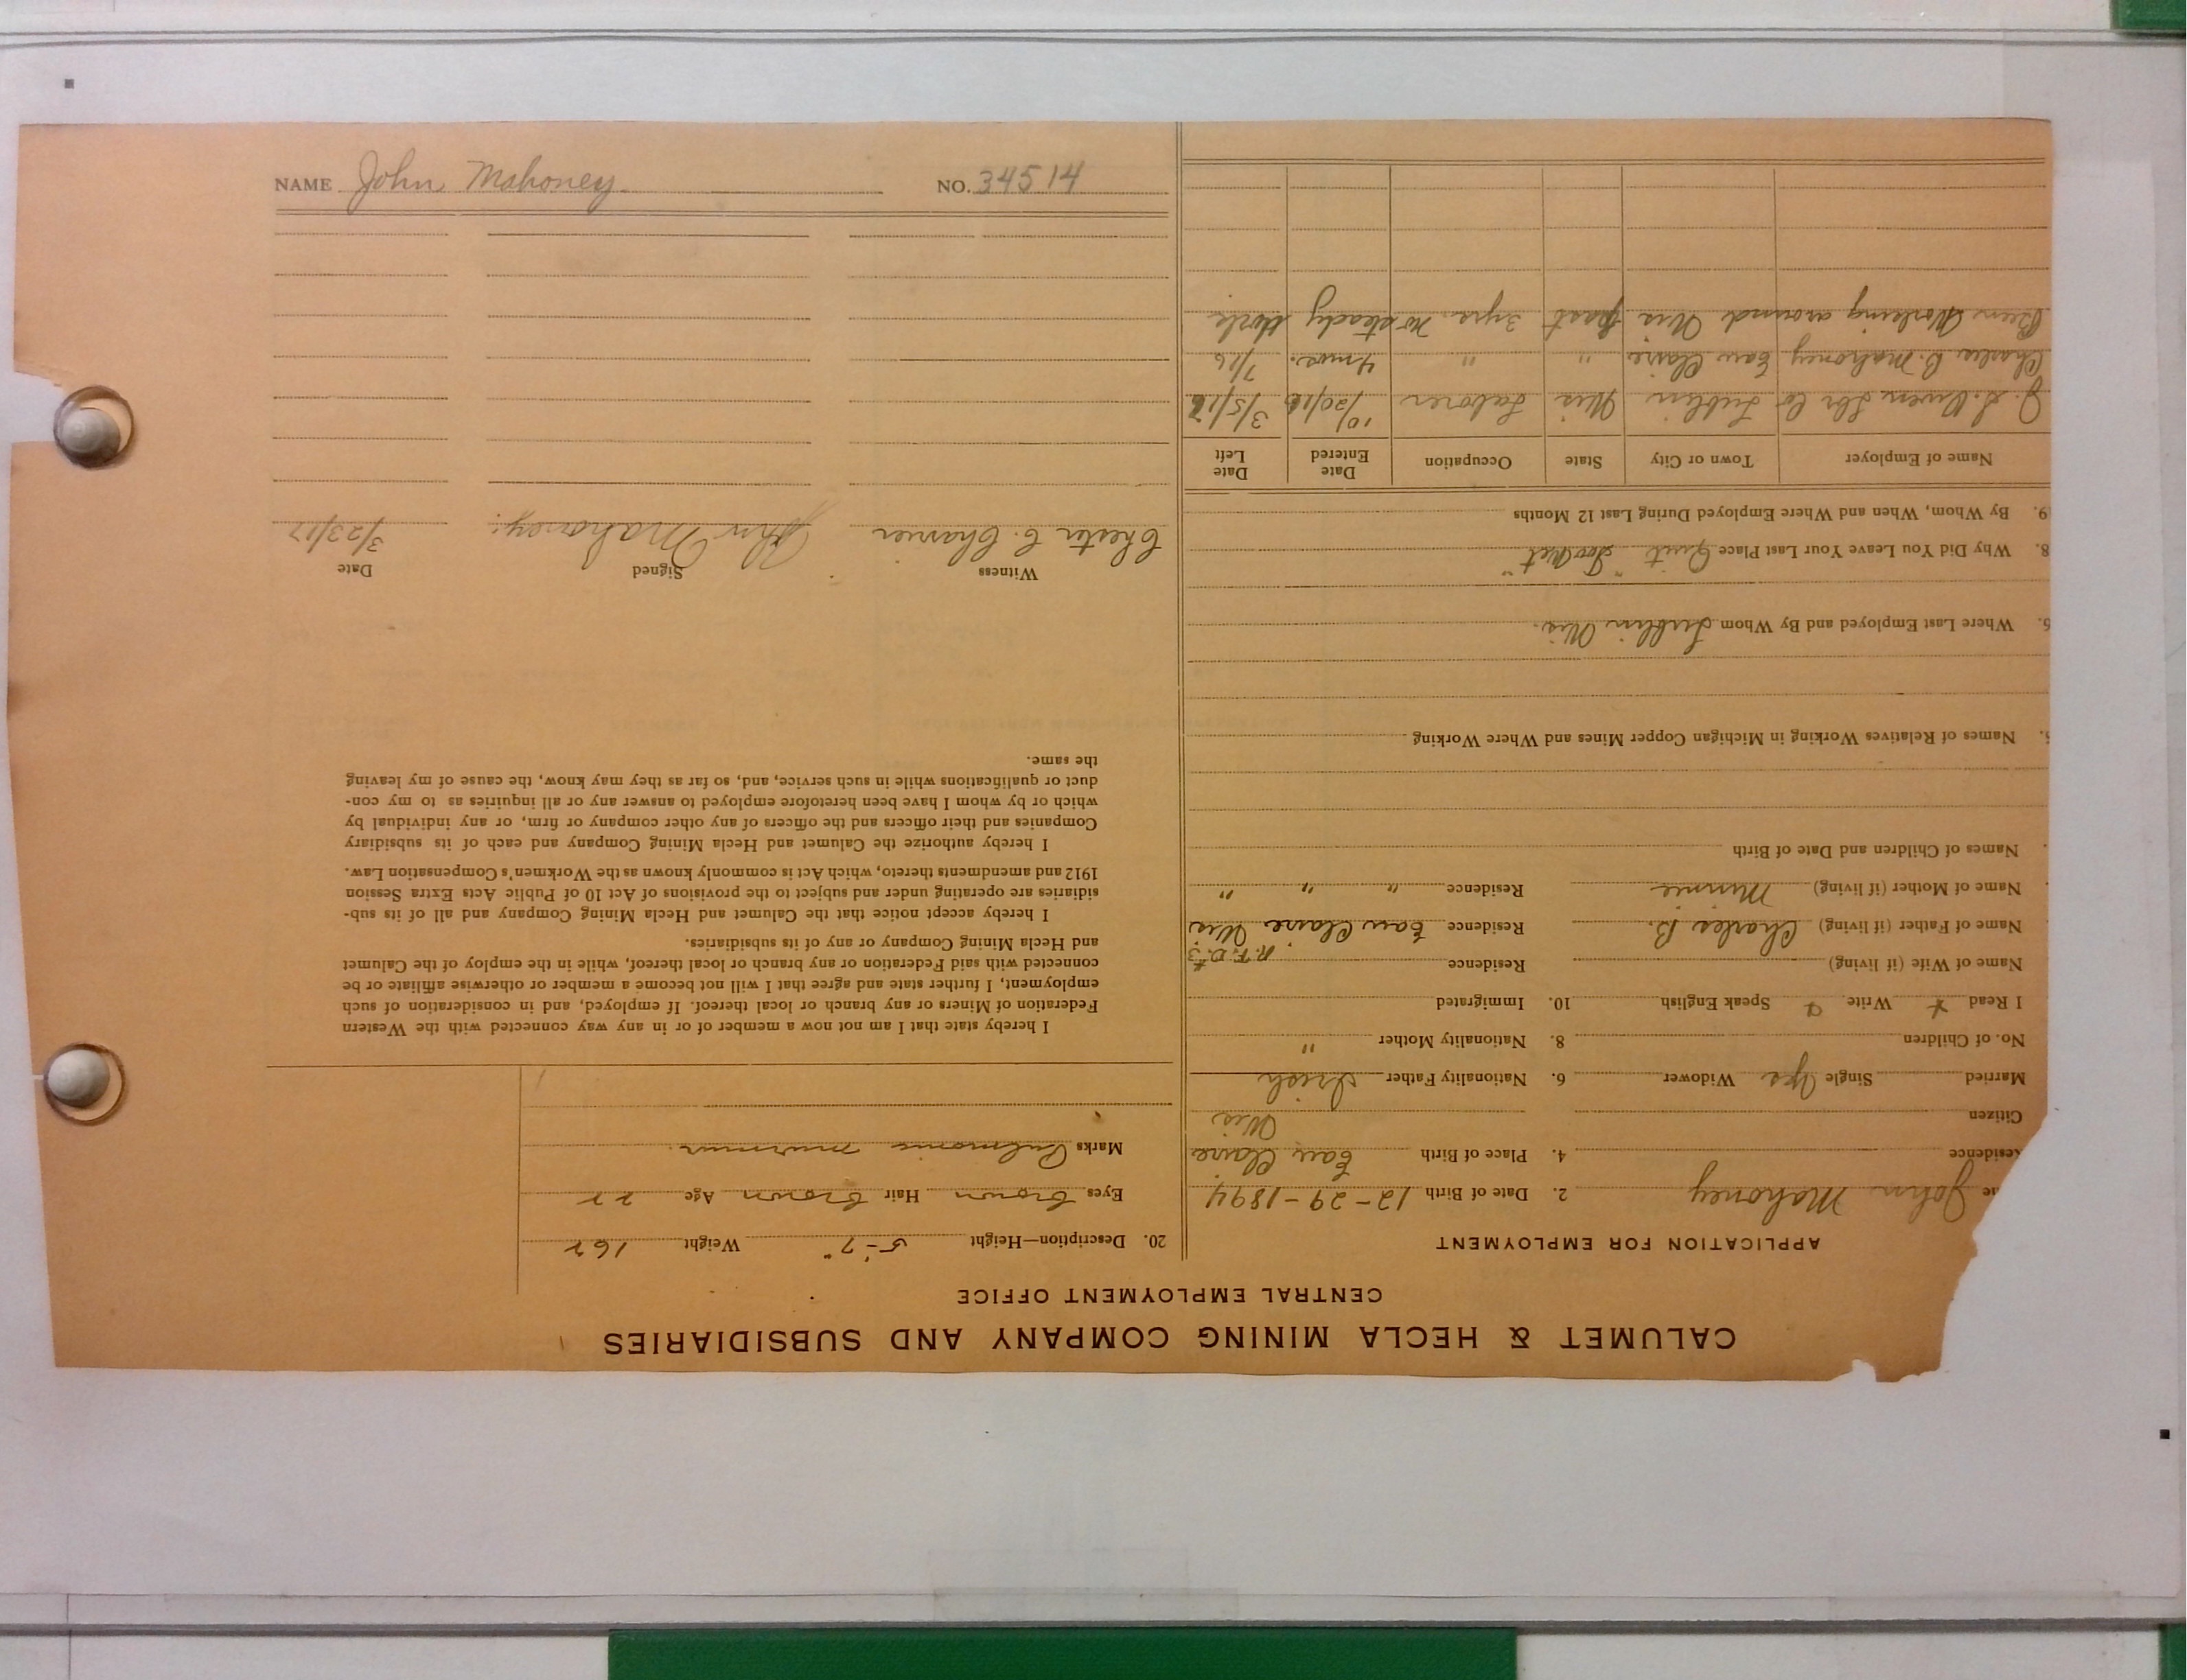 NAME John Mahoney NO. 34514
CALUMET & HECLA MINING COMPANY AND SUBSIDIARIES
CENTRAL EMPLOYMENT OFFICE
APPLICATION FOR EMPLOYMENT
John Mahoney 2. Date of Birth 12-29-1894
Residence 4. Place of Birth Eau Claire
Wis
Citizen
Married Single Yes Widower 6. Nationality Father Irish
No. of Children 8. Nationality Mother "
I Read Write Speak English 10. Immigrated
Name of Wife (if living) Residence
R.F.D. #3
Name of Father (if living) Charles B. Residence Eau Claire Wis
Name of Mother (if living) Minnie Residence " " "
Names of Children and Date of Birth
Names of Relatives Working in Michigan Copper Mines and Where Working
6. Where Last Employed and By Whom Lublin Wis.
8. Why Did You Leave Your Last Place Quit
9. By Whom, When and Where Employed During Last 12 Months
Name of Employer Town or City State Occupation Date Entered Date Left
J. S. Owen Lbr Co Lublin Wis Laborer 10/20/16 3/5/17
Charles B. Mahoney Eau Claire " " 4 mos. 7/16
Been Working around Wis past 3 yrs. no steady work
20. Description—Height 5'-7" Weight 162
Eyes brown Hair brown Age 22
Marks Pulmonic murmur.
I hereby state that I am not now a member of or in any way connected with the Western
Federation of Miners or any branch or local thereof. If employed, and in consideration of such
employment, I further state and agree that I will not become a member or otherwise affiliate or be
connected with said Federation or any branch or local thereof, while in the employ of the Calumet
and Hecla Mining Company or any of its subsidiaries.
I hereby accept notice that the Calumet and Hecla Mining Company and all of its sub-
sidiaries are operating under and subject to the provisions of Act 10 of Public Acts Extra Session
1912 and amendments thereto, which Act is commonly known as the Workmen's Compensation Law.
I hereby authorize the Calumet and Hecla Mining Company and each of its subsidiary
Companies and their officers and the officers of any other company or firm, or any individual by
which or by whom I have been heretofore employed to answer any or all inquiries as to my con-
duct or qualifications while in such service, and, so far as they may know, the cause of my leaving
the same.
Witness Signed Date
Chester C. John Mahoney. 3/23/17